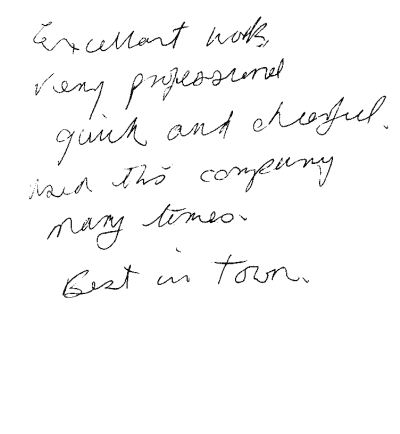 Excellant work,
very professional
quick and cheerful.
used this company
many times.
Best in town.